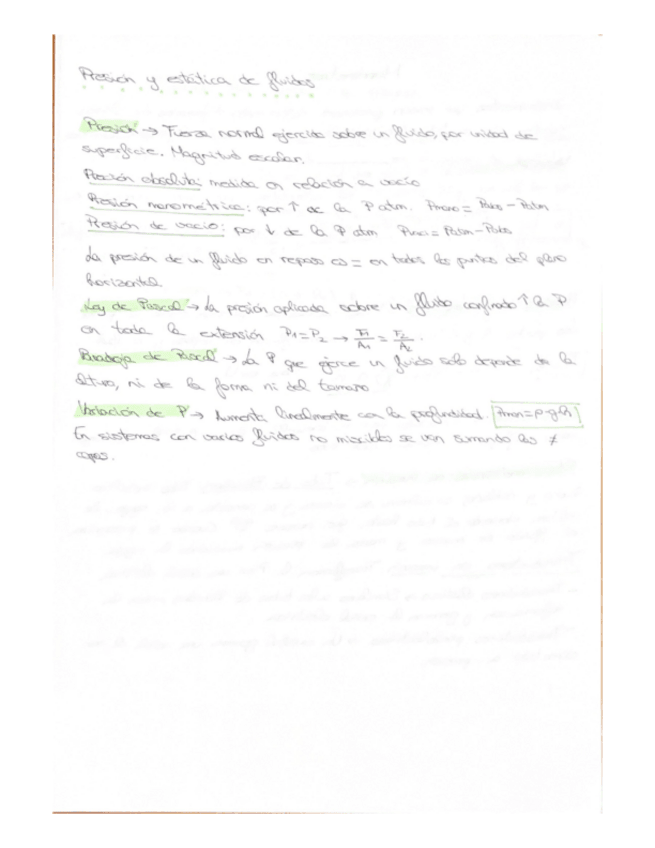 Presión y estática de fluidos
Presión → Fuerza normal ejercida sobre un fluido, por unidad de
superficie. Magnitud escalar.
Presión absoluta: medida en relación a vacío
Presión manométrica: por ↑ de la P atm. Pmano = Pabs - Patm
Presión de vacío: por ↓ de la P atm Pvací = Patm - Pabs
La presión de un fluido en reposo es = en todos los puntos del plano
horizontal.
Ley de Pascal → La presión aplicada sobre un fluido confinado ↑ la P
en toda la extensión P1 = P2 → F1/A1 = F2/A2.
Paradoja de Pascal → La P que ejerce un fluido solo depende de la
altura, ni de la forma ni del tamaño
Variación de P → Aumenta linealmente con la profundidad. Pman = ρ·g·h
En sistemas con varios fluidos no miscibles se van sumando las ≠
capas.